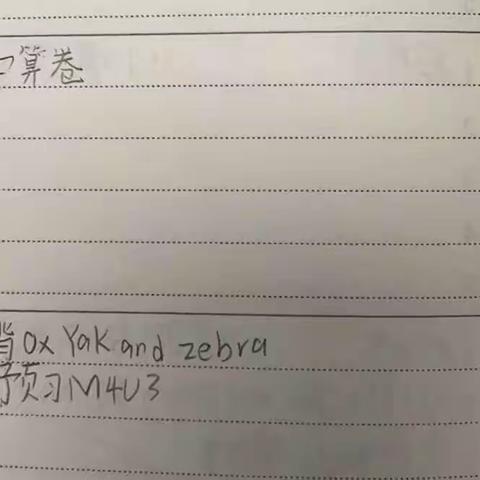 口算卷
背Ox Yak and zebra
预习M4U3